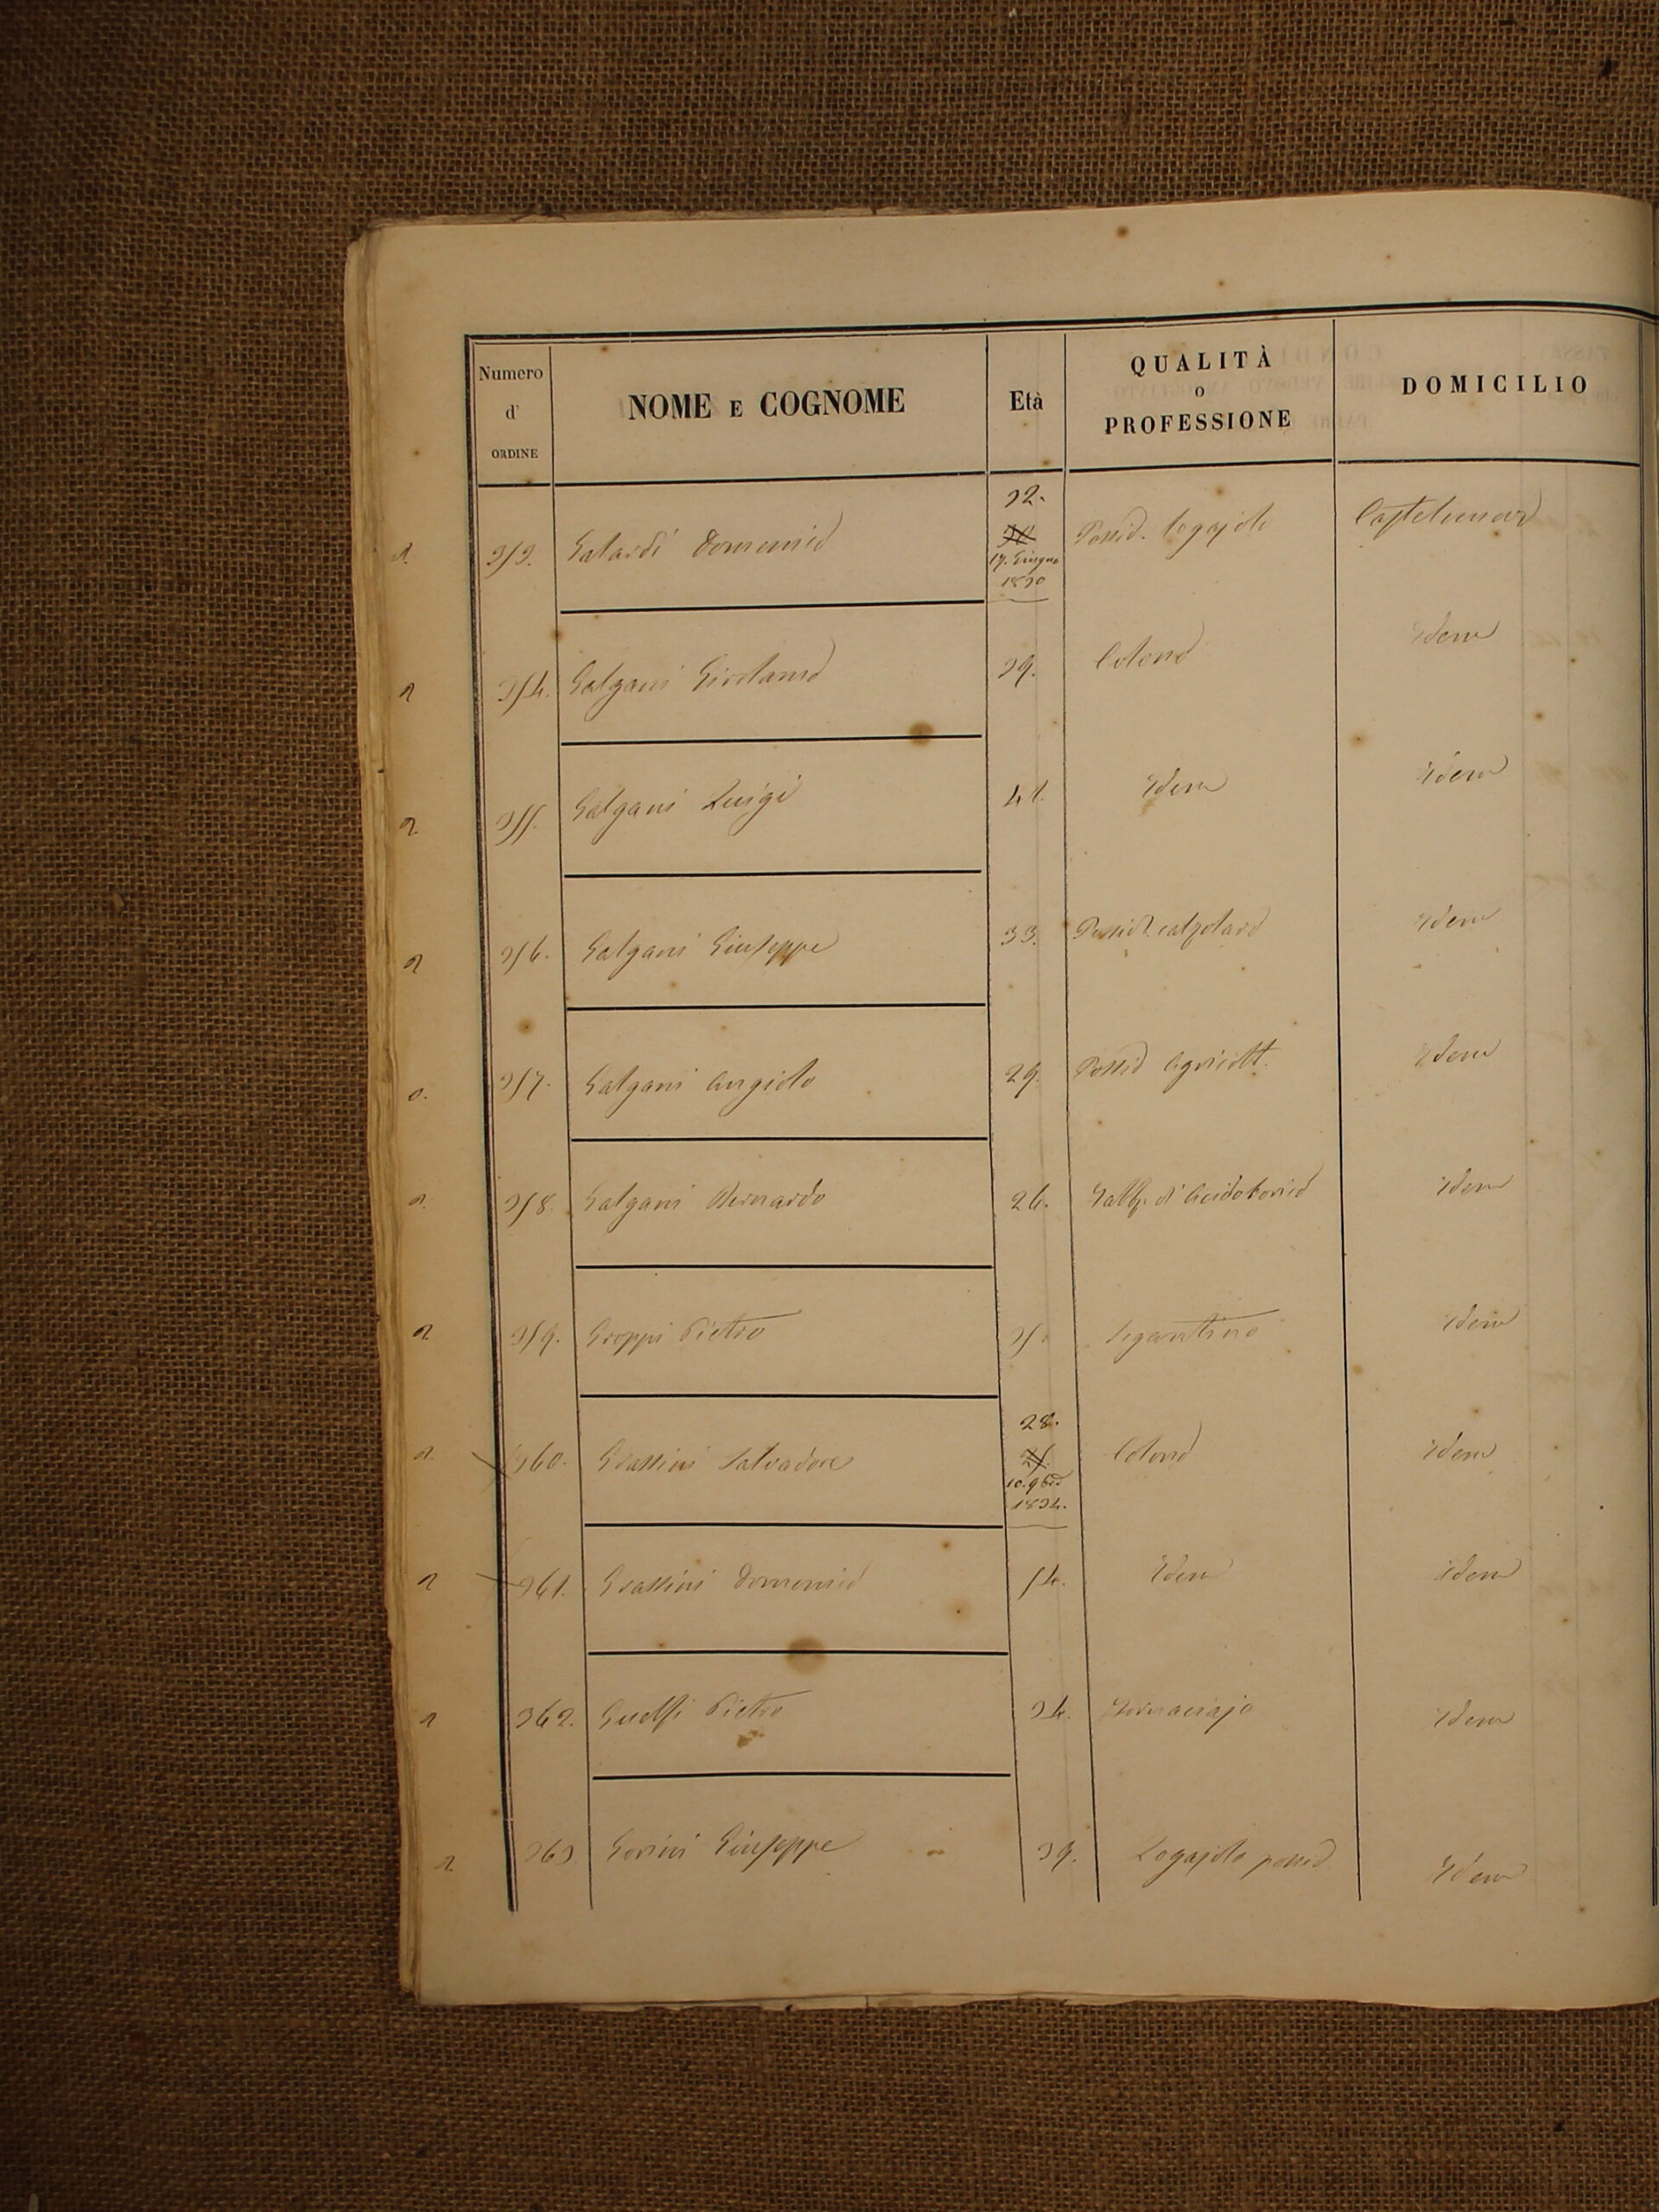 Numero
d'
ORDINE
NOME E COGNOME
Età
QUALITÀ
O
PROFESSIONE
DOMICILIO
353. Galardi Domenico 32. Possid. legajolo Castelnuovo
17. Giugno
1830
354. Galgani Girolamo 39. Colono Idem
355. Galgani Luigi 41. Idem Idem
356. Galgani Giuseppe 33. Possid. calzolaro Idem
357. Galgani Angiolo 29. Possid Agricolt. Idem
358. Galgani Bernardo 26. Fabb. di Acido borico Idem
359. Groppi Pietro 35. Segantino Idem
360. Grassini Salvadore 28. Colono Idem
10. 9bre
1834.
361. Grassini Domenico 54. Idem Idem
362. Guelfi Pietro 34. Fornaciajo Idem
363. Gorini Giuseppe 39. Legajolo possid. Idem